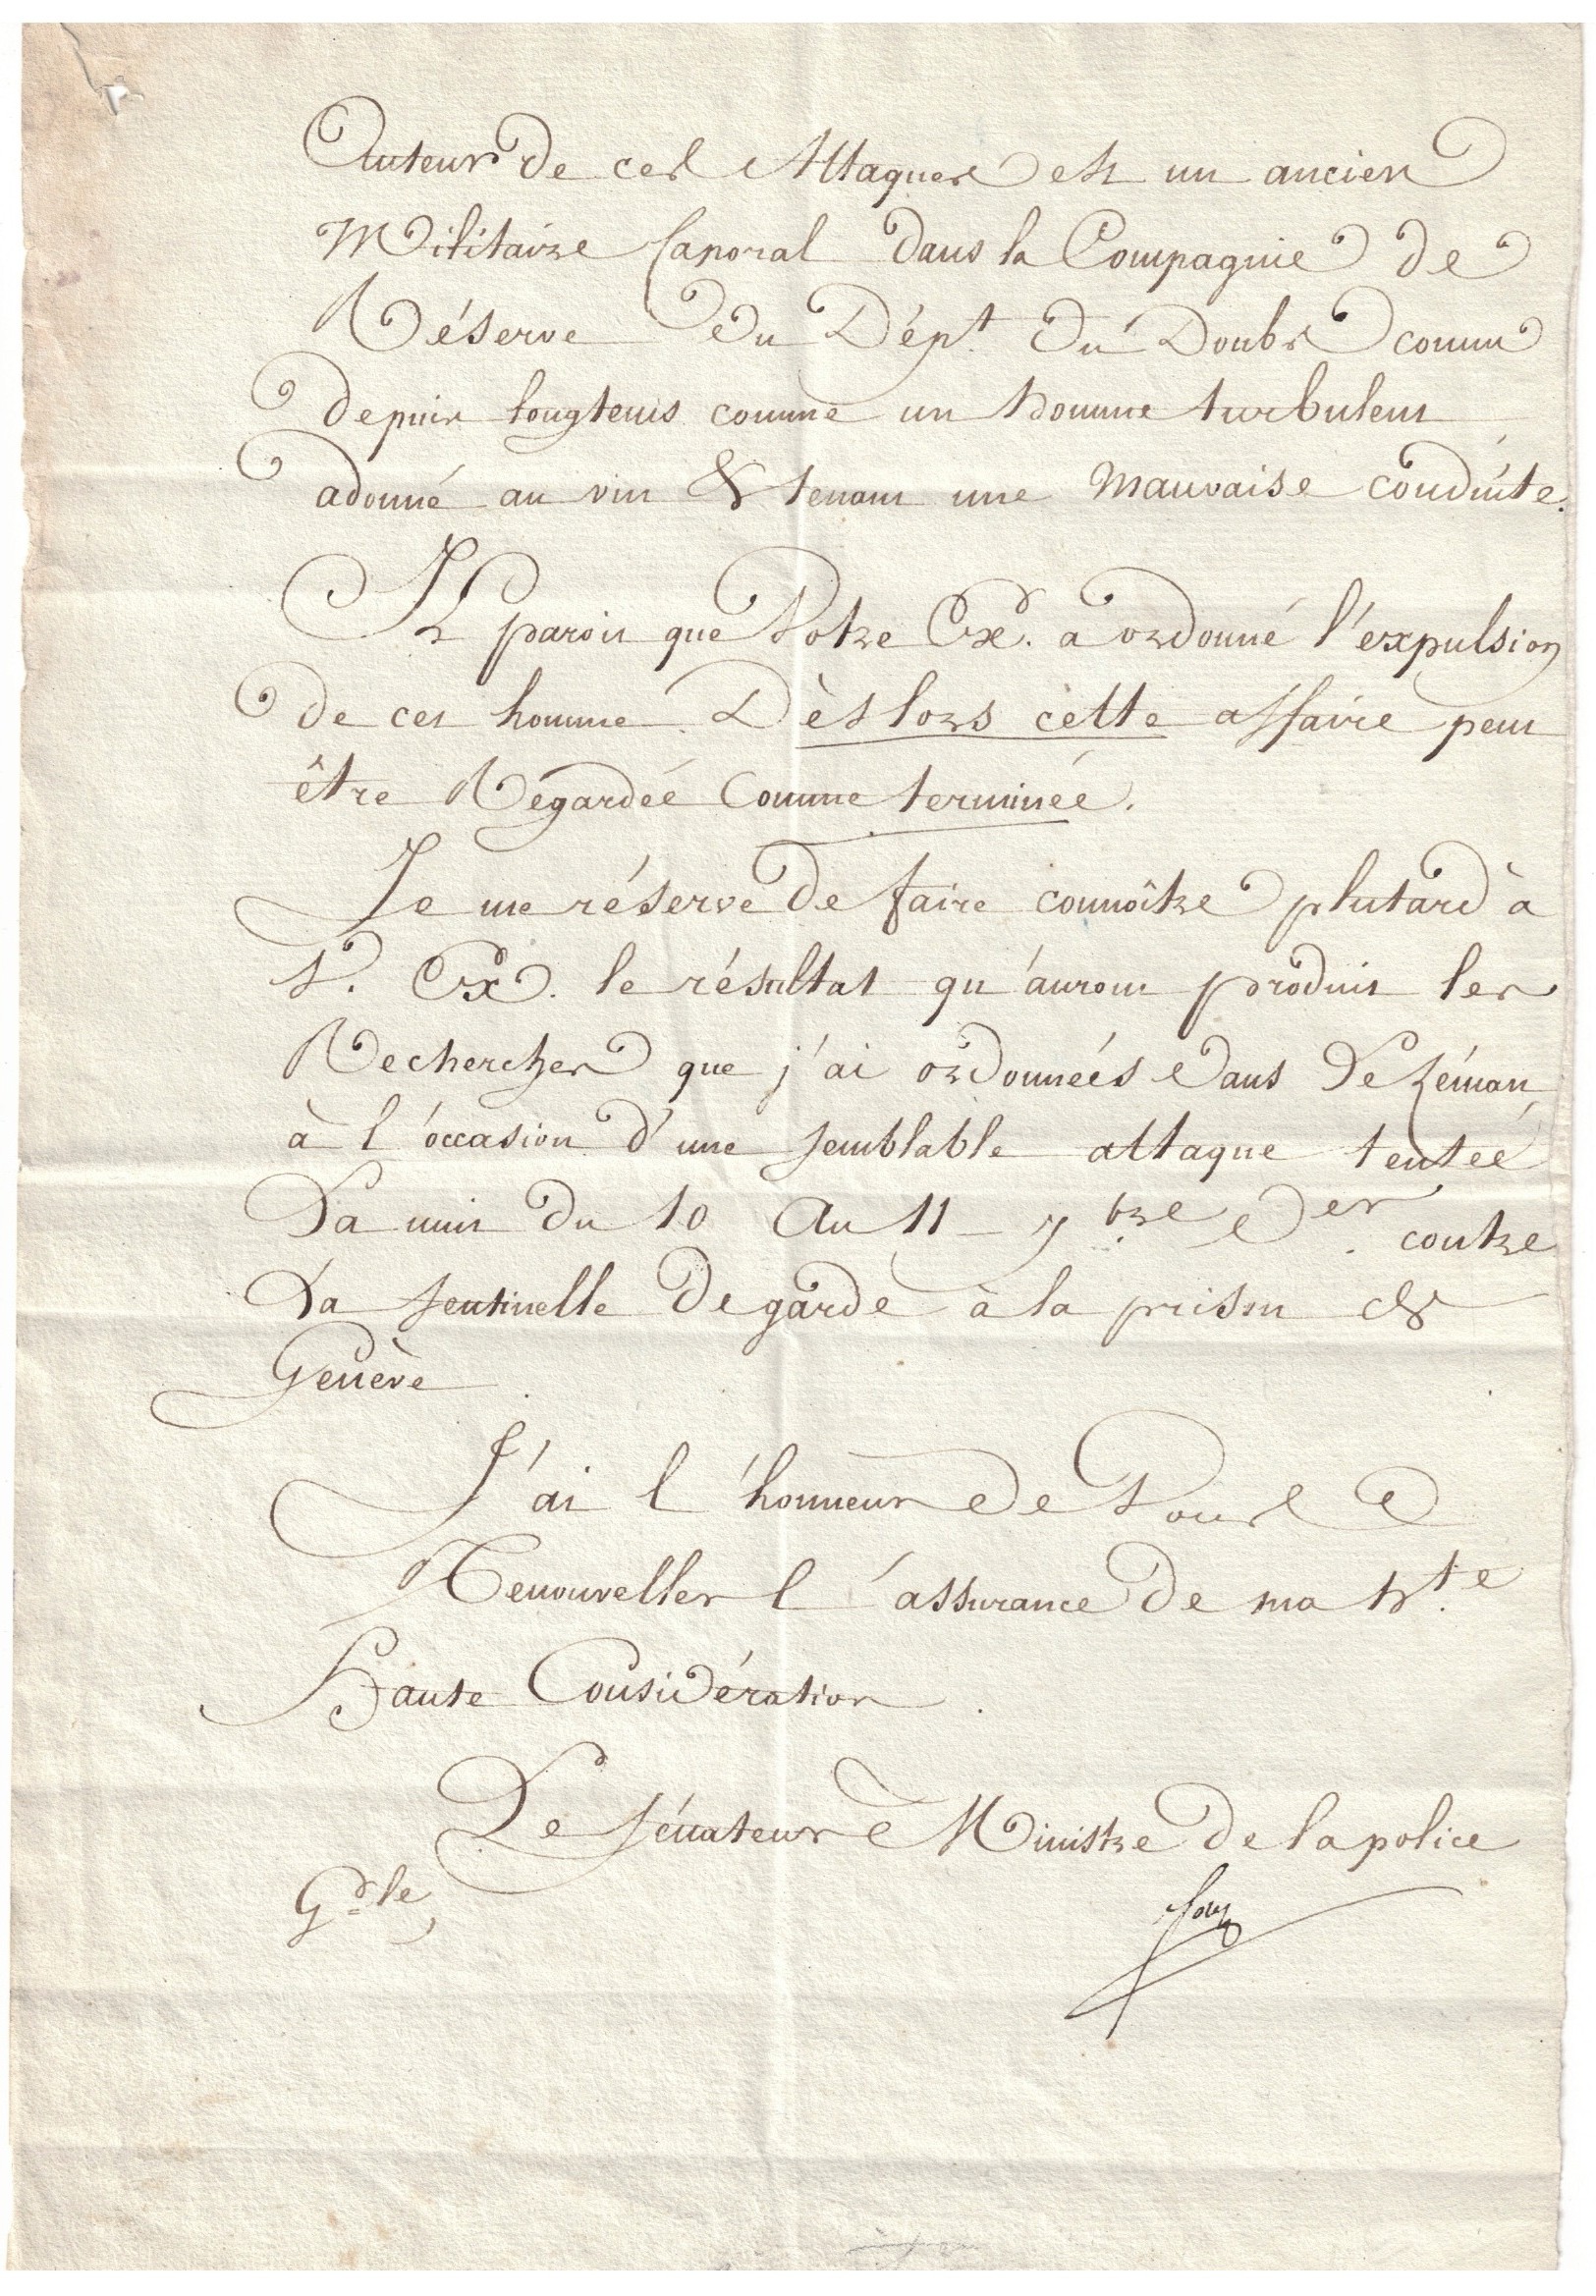 Auteur de ces Attaques est un ancien
Militaire Caporal dans la Compagnie de
Réserve du Dépt. du Doubs connu
depuis longtems comme un homme turbulent
adonné au vin & tenant une mauvaise conduite.
Il paroit que Votre Ex. a ordonné l'expulsion
de cet homme Dèslors cette affaire peut
être Regardée Comme terminée.
Je me réserve de faire connoître plutard à
V. Ex. le résultat qu'auront produit les
Recherches que j'ai ordonnées dans Le Léman
à l'occasion d'une semblable attaque tentée
La nuit du 10 Au 11 7bre der contre
La sentinelle de garde à la prison de
Genève
J'ai l'honneur de Vous
Renouveller l'assurance de ma hte
Haute Considération.
Le Sénateur Ministre de la police
Gdle,